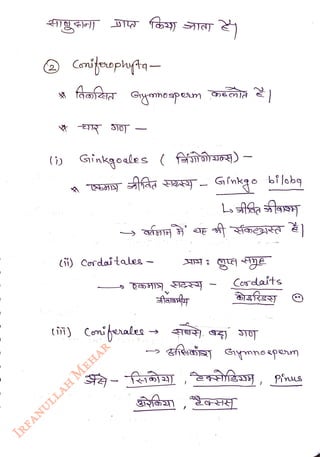 साबुदाना प्राप्त किया जाता है।
② Coniferophyta —
* विकसित Gymnosperm कहलाते है।
* चार गण —
(i) Ginkgoales ( गिंगोगोयल्स ) —
* एकमात्र जीवित सदस्य - Ginkgo biloba
↳ जीवित जीवाश्म
→ वर्तमान में यह भी संकटग्रस्त है।
(ii) Cordaitales - प्रायः लुप्त समूह
→ एकमात्र सदस्य - Cordaits
जीवाश्मीय कोर्डाइटिस
(iii) Coniferales → सबसे बड़ा गण
→ अधिकांश Gymnosperm
जैसे - सिकोया, टेक्सोडियम, Pinus
टैक्सस
IRFANULLAH MEHAR